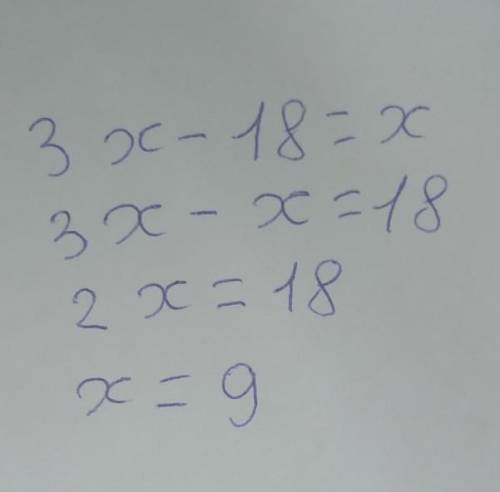 3x - 18 = x
3x - x = 18
2x = 18
x = 9